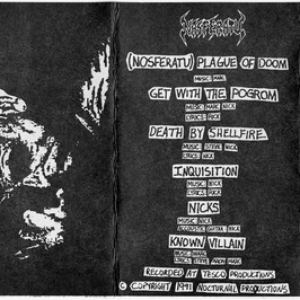 NOSFERATU
(NOSFERATU) PLAGUE OF DOOM
MUSIC: MARC
GET WITH THE POGROM
MUSIC: MARC NICK
LYRICS: RICK
DEATH BY SHELLFIRE
MUSIC: STEVE NICK
LYRICS: NICK
INQUISITION
MUSIC: NICK
LYRICS: RICK
NICKS
MUSIC: NICK
ACCOUSTIC GUITAR: NICK
KNOWN VILLAIN
MUSIC: MARC
LYRICS: STEVE MARC
RECORDED AT TESCO PRODUCTIONS
© COPYRIGHT 1991 NOCTURNAL PRODUCTIONS